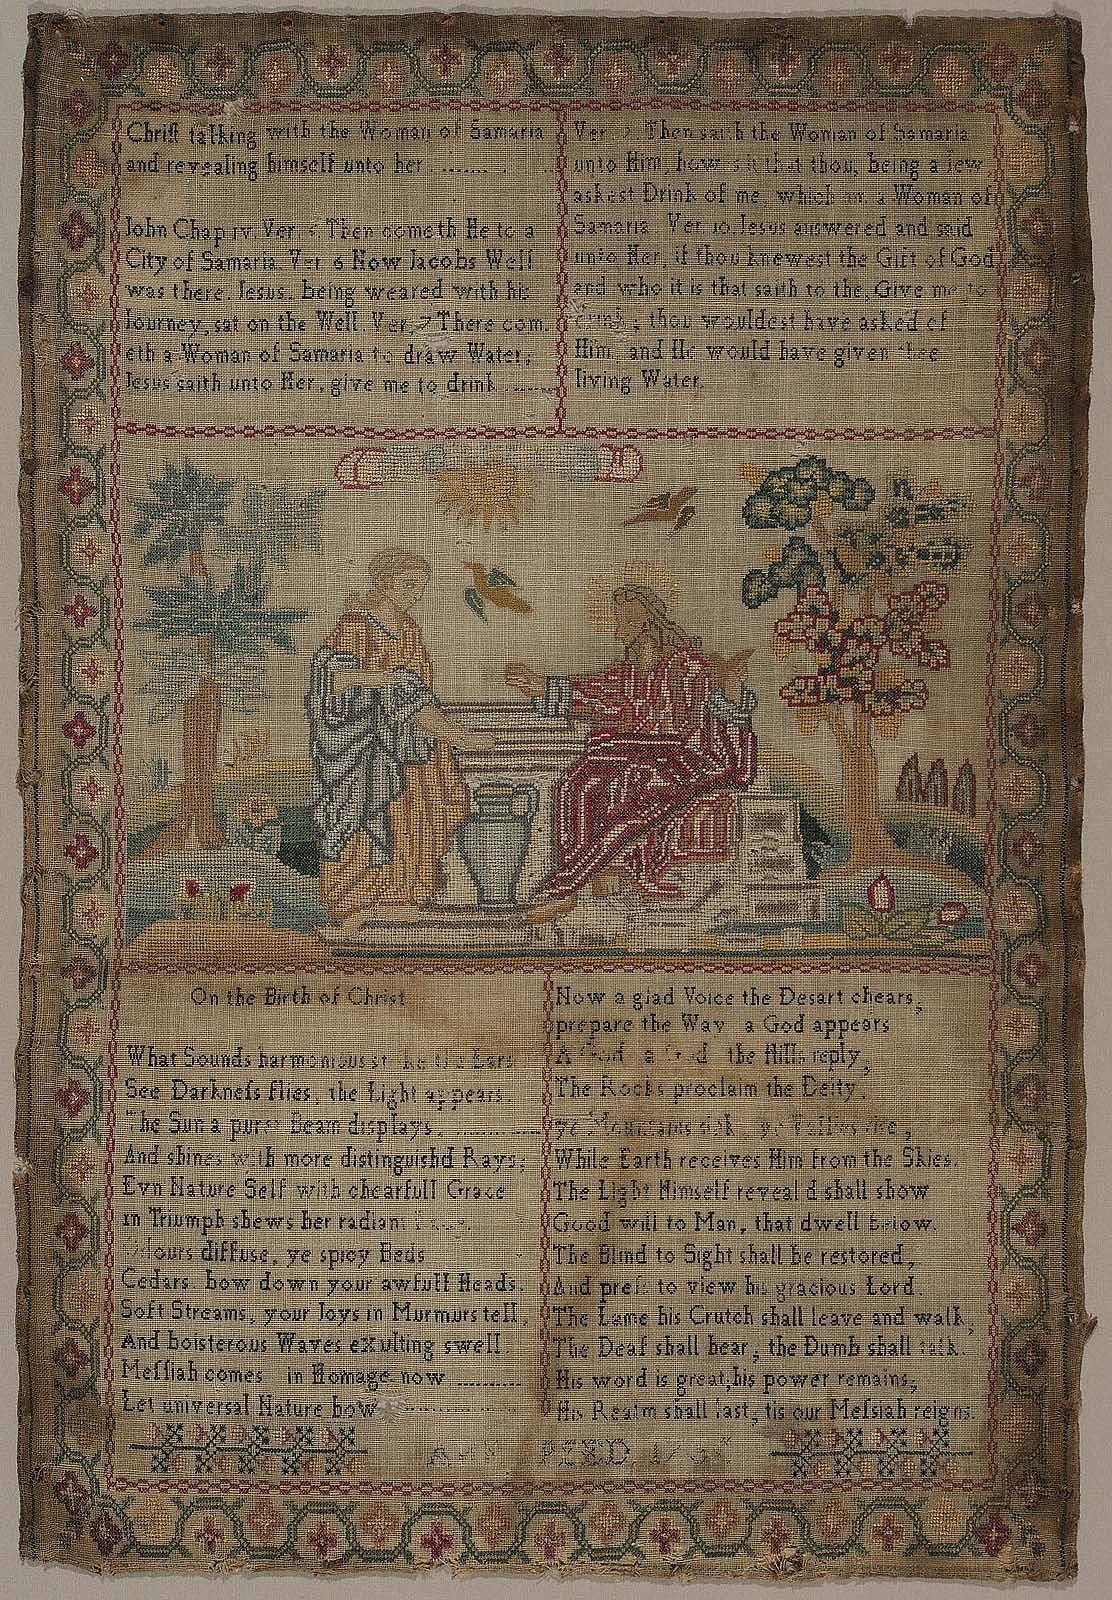 Christ talking with the Woman of Samaria
and revealing himself unto her
John Chap IV. Ver. 5 Then cometh He to a
City of Samaria. Ver 6 Now Jacobs Well
was there. Jesus. being weared with his
Journey, sat on the Well. Ver. 7 There com
eth a Woman of Samaria to draw Water,
Jesus saith unto Her, give me to drink
Ver. Then saith the Woman of Samaria
unto Him, how is it that thou, being a Jew
askest Drink of me, which am a Woman of
Samaria Ver 10. Jesus answered and said
unto Her, if thou knewest the Gift of God
and who it is that saith to the, Give me to
drink, thou wouldest have asked of
Him, and He would have given thee
living Water.
On the Birth of Christ
What Sounds harmonious strike the Ears
See Darkness flies, the Light appears.
The Sun a purer Beam displays.
And shines with more distinguishd Rays;
Evn Nature Self with chearfull Grace
in Triumph shews her radiant
Odours diffuse, ye spicy Beds
Cedars. bow down your awfull Heads.
Soft Streams, your Joys in Murmurs tell,
And boisterous Waves exulting swell.
Messiah comes in Homage now
Let universal Nature bow
Now a glad Voice the Desart chears,
prepare the Way a God appears
A God a God the Hills reply,
The Rocks proclaim the Deity.
ye Mountains sink, ye Vallies rise,
While Earth receives Him from the Skies.
The Light Himself reveal d shall show
Good will to Man, that dwell below.
The Blind to Sight shall be restored,
And press to view his gracious Lord.
The Lame his Crutch shall leave and walk,
The Deaf shall hear, the Dumb shall talk.
His word is great, his power remains,
His Realm shall last, tis our Messiah reigns.